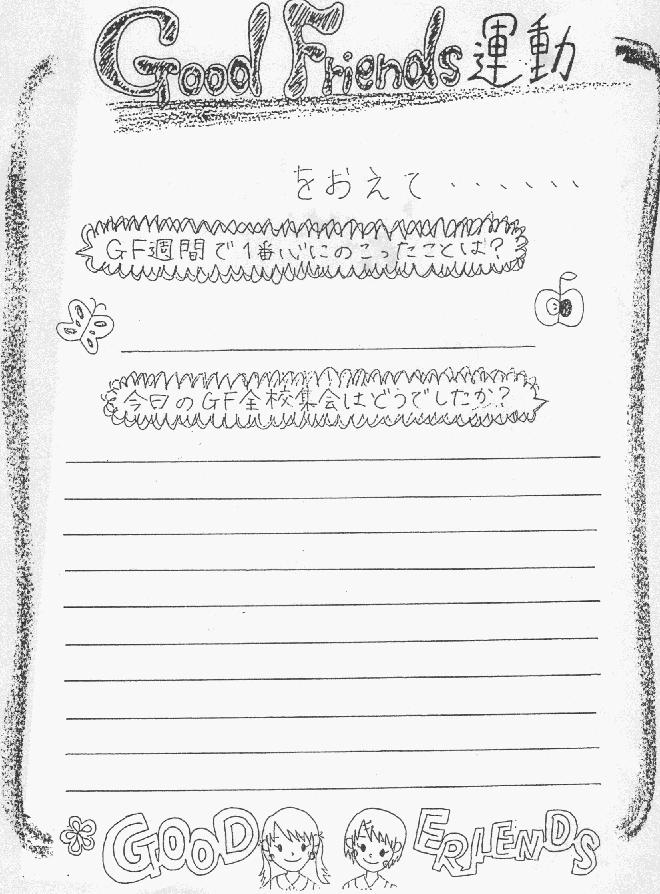 Good Friends運動
をおえて......
GF週間で1番心にのこったことは?
今日のGF全校集会はどうでしたか?
GOOD FRIENDS